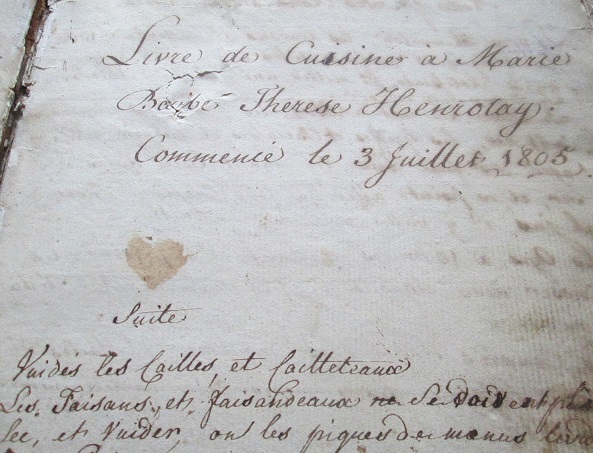 Livre de Cuisine à Marie
Barbe Therese Henrotay.
Commencé le 3 Juillet 1805.
Suite
Vuidés les Cailles, et Cailleteaux
Les Faisans, et faisandeaux ne se doivent
et Vuider, on les piques de menus